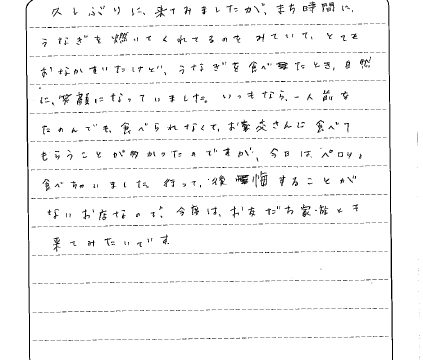 久しぶりに、来てみましたが、まち時間に、
うなぎを燃いてくれてるのをみていて、とても
おなかすいたけど、うなぎを食べたとき、自然
に、笑顔になっていました。いつもなら、一人前を
たのんでも、食べられなくて、お客さんに食べて
もらうことが多かったのですが、今日は、ペロッと
食べちゃいました。行って、後悔することが
ないお店なので、今度は、お友だち家族とも
来てみたいです